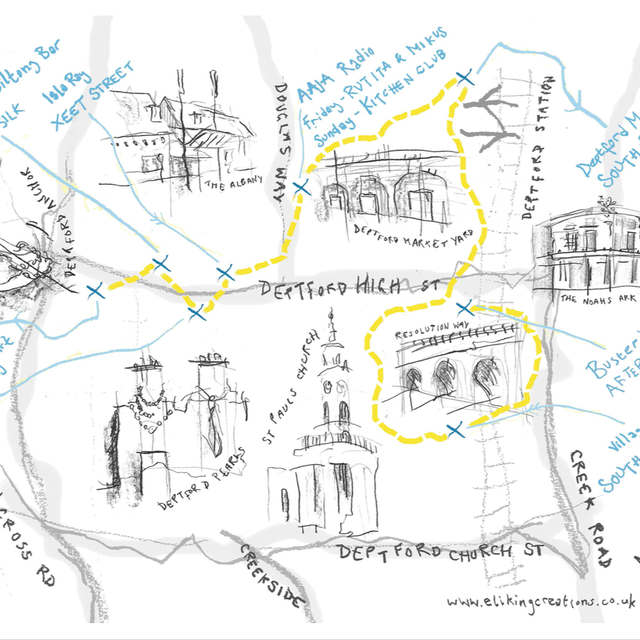 Biltong Bar
SILK
Isla Ray
XEET STREET
AAJA Radio
Friday - RUTITA & MIKUS
Sunday - KITCHEN CLUB
DOUGLAS WAY
DEPTFORD STATION
Deptford M
SOUTH
THE ALBANY
DEPTFORD ANCHOR
DEPTFORD MARKET YARD
DEPTFORD HIGH ST
THE NOAHS ARK
RESOLUTION WAY
Buster
AFTER
ST PAULS CHURCH
DEPTFORD PEARLS
Villa
SOUTH
CREEK ROAD
CROSS RD
CREEKSIDE
DEPTFORD CHURCH ST
www.elikingcreations.co.uk